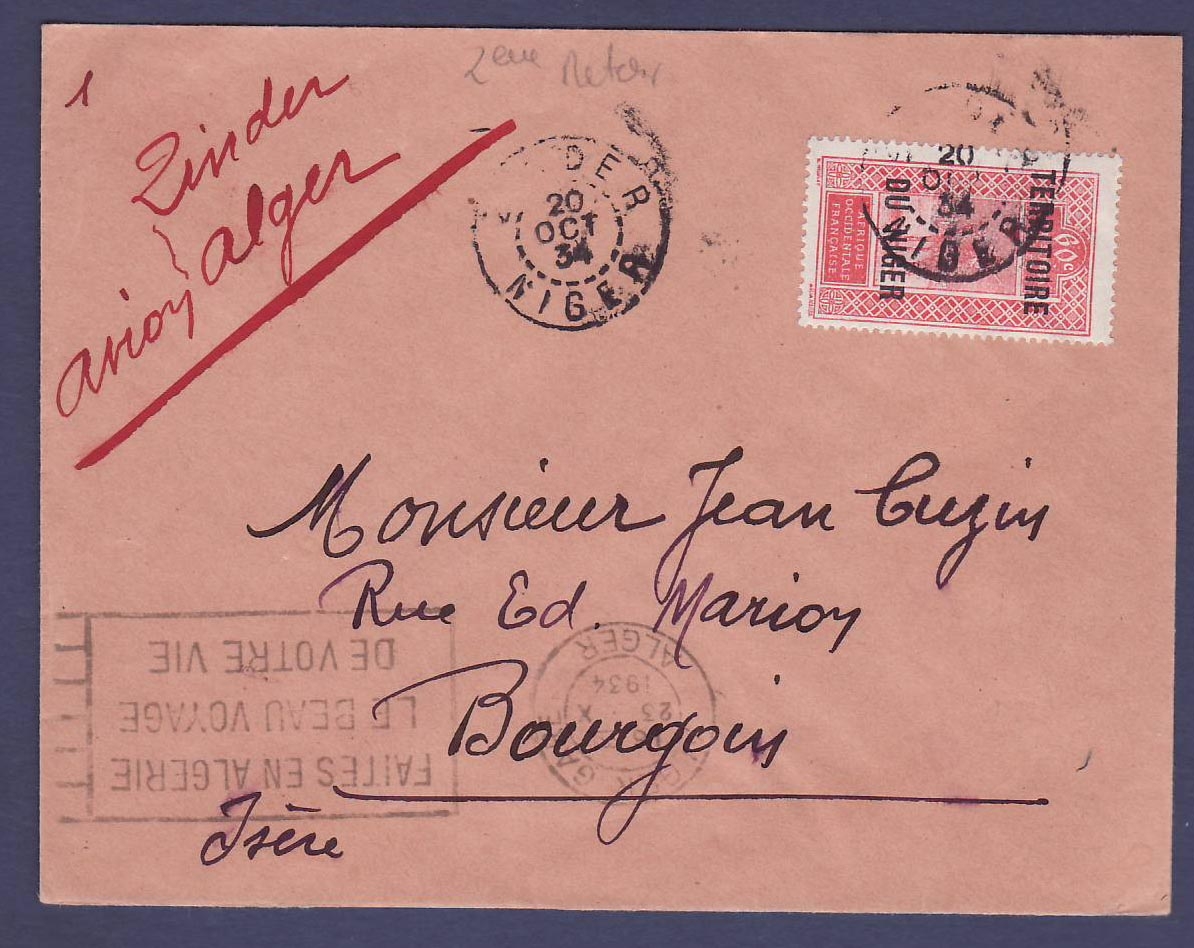 1
2eme Retour
Zinder
Alger
avion
DER
20
OCT
34
NIGER
20
OCT
34
NIGER
TERRITOIRE
DU NIGER
60c
AFRIQUE
OCCIDENTALE
FRANÇAISE
Monsieur Jean Cuzin
Rue Ed. Marion
Bourgoin
Isère
FAITES EN ALGERIE
LE BEAU VOYAGE
DE VOTRE VIE
ALGER GARE
23 X
1934
ALGER